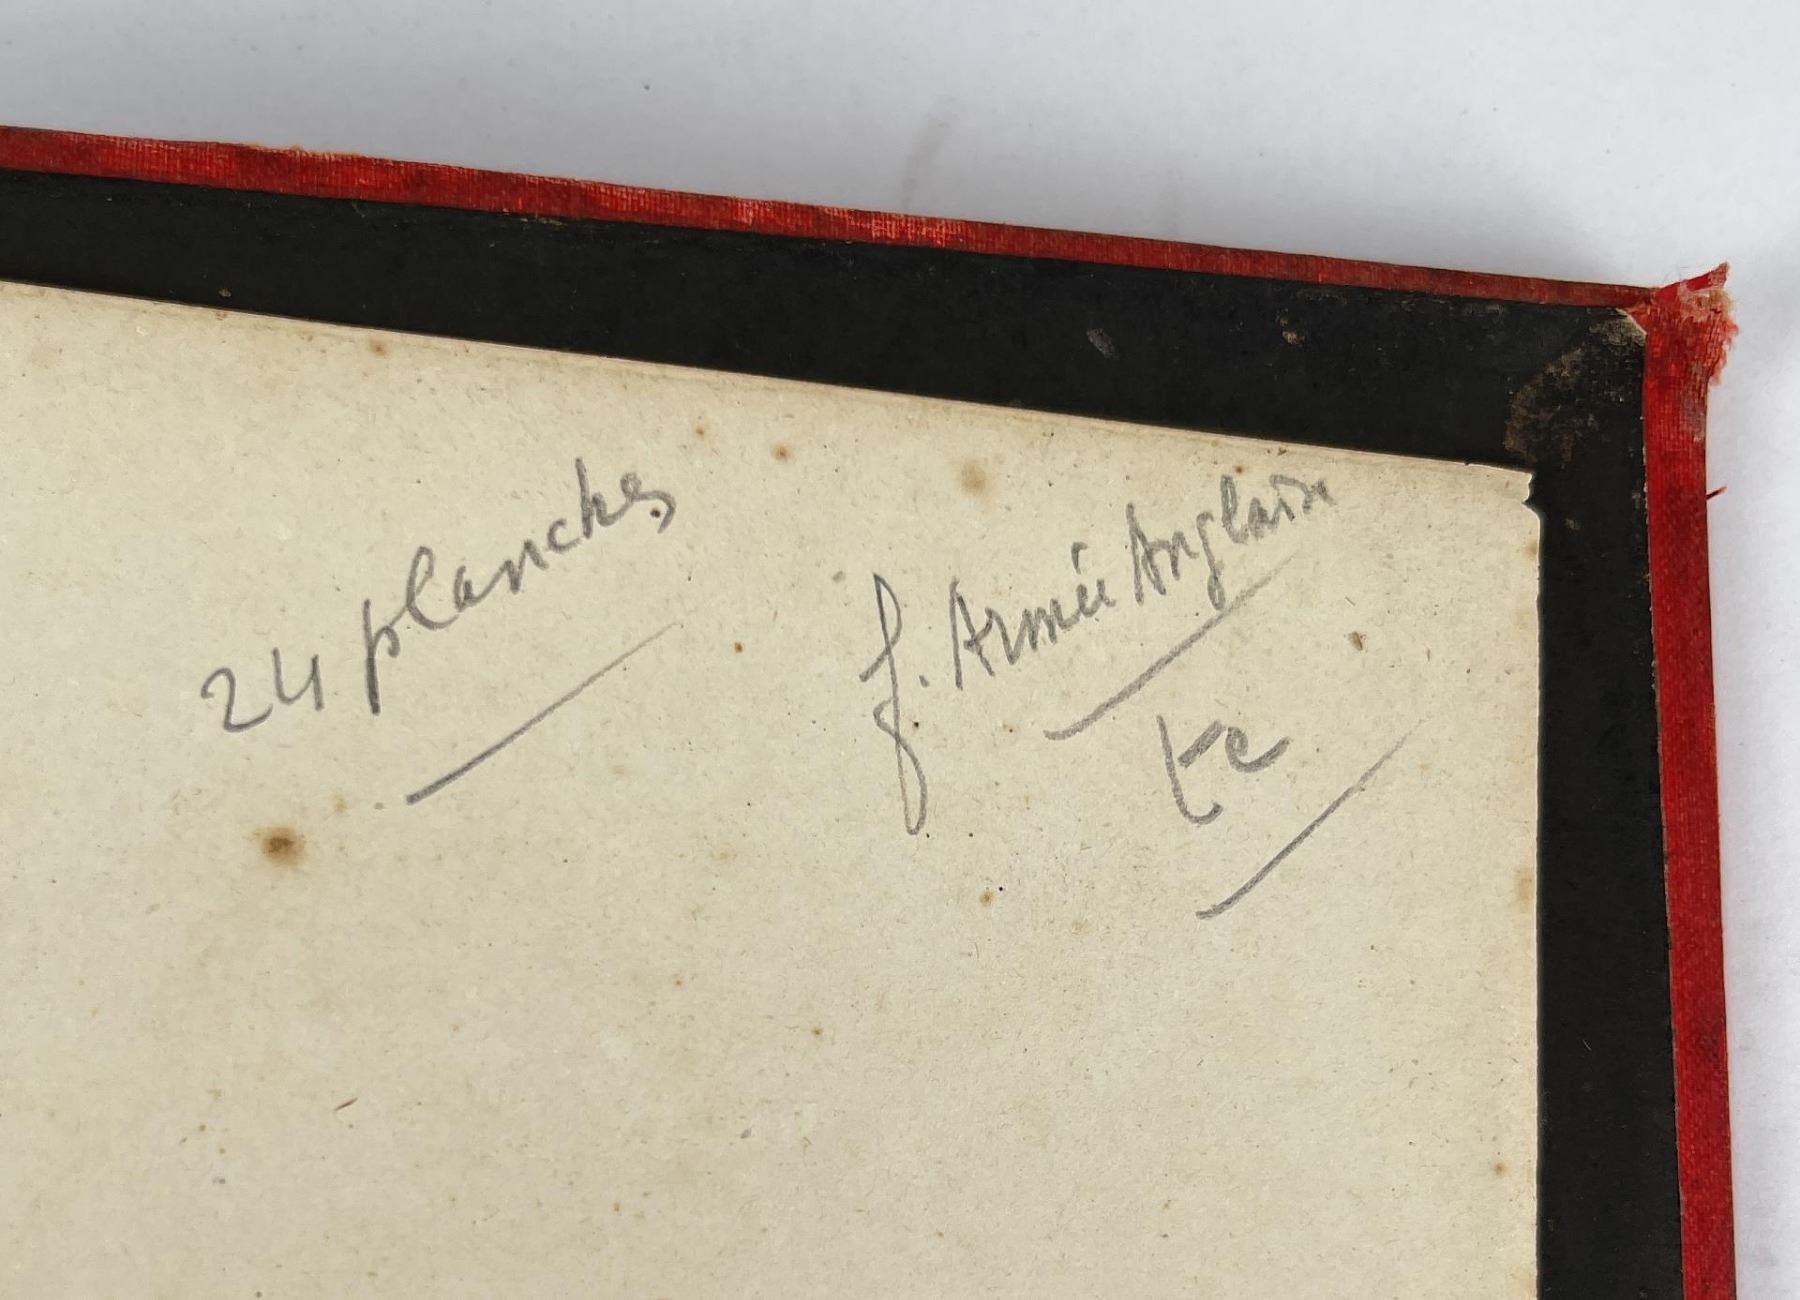 24 planches
f. Armée Anglaise
te